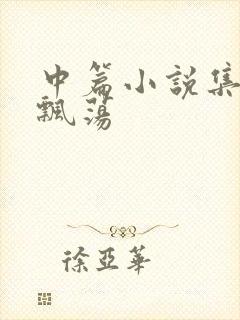 中篇小説集
飄蕩
徐亞華